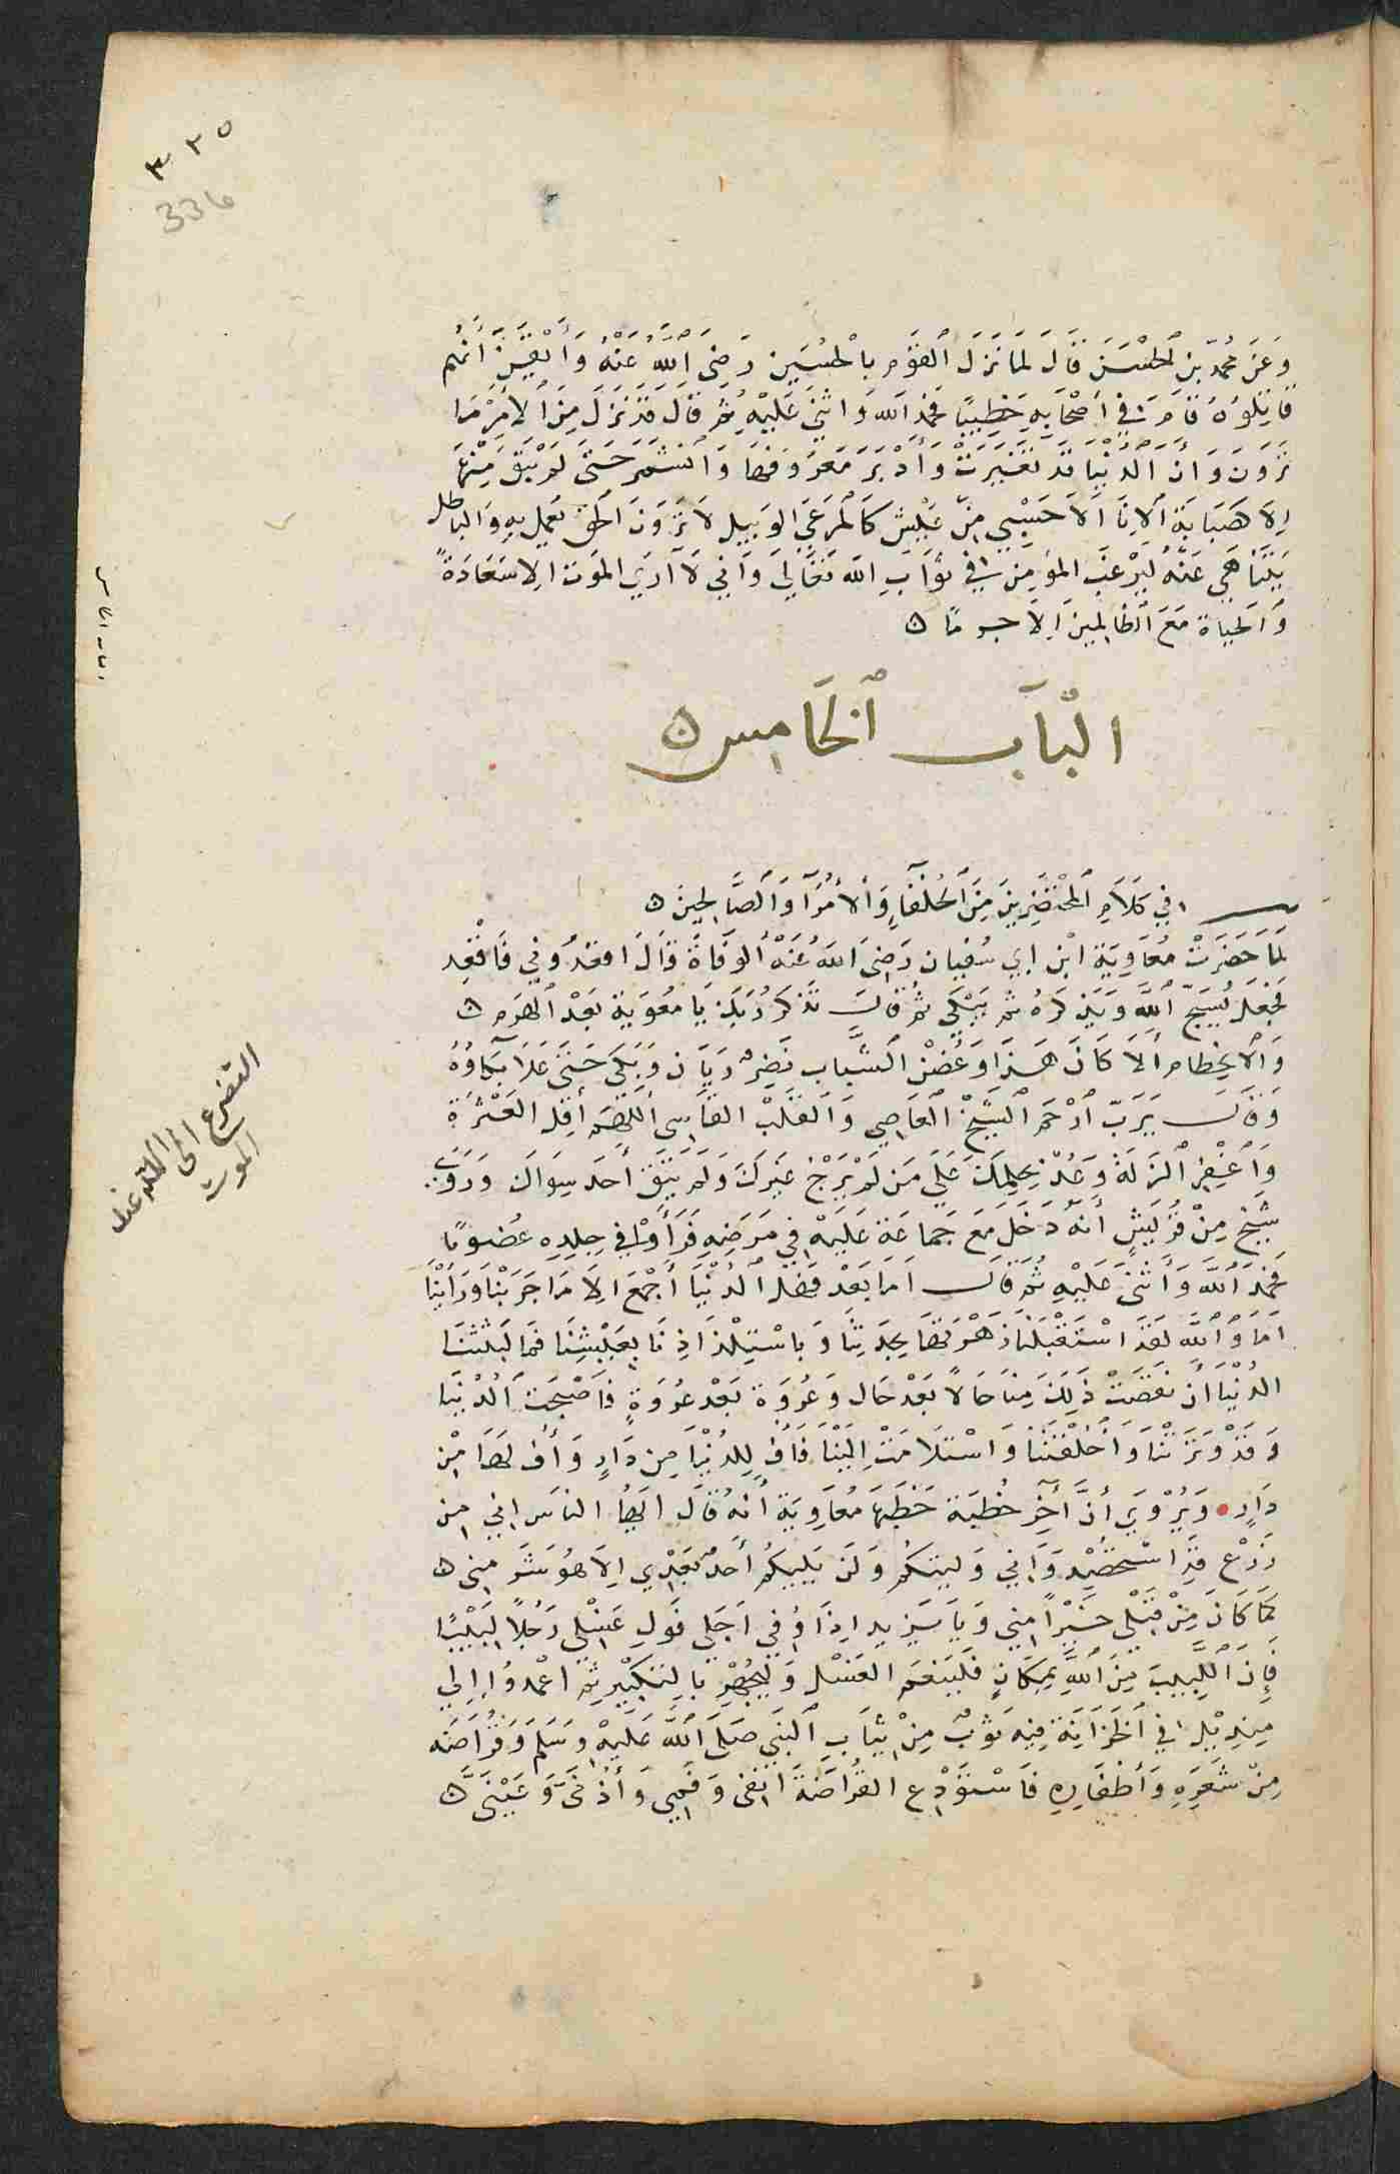 ٣٢٥
336
وَعَنْ مُحَمَّد بْن الْحَسَن قَالَ لَمَّا نَزَلَ الْقَوْم بالْحُسَيْن رَضِيَ اللَّهُ عَنْهُ وَأَيْقَنَ أَنَّهُم
قَاتِلُوهُ قَامَ فِي أَصْحَابِهِ خَطِيبًا فَحَمِدَ اللَّه وَاثْنَى عَلَيْهِ ثُمَّ قَالَ قَدْ نَزَلَ مِنَ الْأَمْرِ مَا
تَرَوْنَ وَأَنَّ الدُّنْيَا قَدْ تَغَيَّرَتْ وَأَدْبَرَ مَعْرُوفُهَا وَانْشَمَرَ حَتَّى لَمْ يَبْقَ مِنْهَا
اِلَّا صُبَابَة الْاِنَا اَلَا حَسْبِي مِنْ عَيْش كَالْمَرْعَى الوَبِيل لَا تَرَوْنَ الْحَقَّ يُعْمَل بِهِ وَالْبَاطل
يَتَنَاهَى عَنْهُ لِيَرْغَب المُؤْمِن فِي ثوَابِ اللَّه تَعَالَى وَاَنِّي لَا اَرَى المَوْتَ الِا سَعَادَةً
وَالْحَيَاة مَعَ الظَّالِمِينَ اِلَّا جرمًا ه
الْبَابُ الْخَامِس ه
الباب الخامس
فِي كَلَامِ الْمُحْتَضَرِينَ مِنَ الْخُلَفَاءِ وَالْأُمَرَآ وَالصَّالِحِينَ ه
لَمَّا حَضَرَتْ مُعَاوِيَة ابْن ابي سُفْيَان رَضِيَ اللَّهُ عَنْهُ الْوَفَاةُ قَالَ اقْعِدُونِي فَأُقْعِد
فَجَعَلَ يُسَبِّحُ اللَّه وَيَذْكُرهُ ثم يَبْكِي ثمَّ قَالَ تَذْكُرُ رَبَّكَ يَا مُعَوِيَة بَعْدَ الْهَرَمِ ه
وَالْاِنْحِطَام أَلَا كَانَ هَذَا وَغُصْن الشَّبَاب نَضِرٌ رَيَّان وَبَكَى حَتَّى عَلَا بُكَاؤُهُ
وَقَالَ يَرَبِّ ارْحَم الشَّيْخَ الْعَاصِي وَالْقَلْب القَاسِي اللَّهُمَّ أَقِل الْعَثْرَة
وَاغْفِر الزَّلَة وَعُدْ بِحِلْمِكَ عَلَى مَن لَمْ يَرْجُ غَيْرَكَ وَلَمْ يَثِقْ أَحَد سِوَاكَ وَرَوَى
شَيْخ مِنْ قُرَيْشٍ أَنَّهُ دَخَلَ مَعَ جَمَاعَة عَلَيْهِ فِي مَرَضِهِ فَرَأَوْا فِي جِلْدِهِ غُضُونًا
فَحَمِدَ اللَّه وَأَثْنَى عَلَيْهِ ثُمَّ قَالَ اَمَّا بَعْد فَهَل الدُّنْيَا أَجْمَعَ الِا مَا جَرَبْنَا وَرَاَيْنَا
اَمَا وَاللَّه لَقَدْ اسْتَقْبَلْنَا زَهْرَتهَا بِجِدَتِنَا وَبِاسْتِلْذَاذِنَا بِعَيْشِنَا فَمَا لَبَثَتْنَا
الدُنْيَا أَن نَقَضَتْ ذَلِكَ مِنَّا حَالًا بَعْد حَال وَعُرْوَة بَعْد عُرْوَةٍ فَاَصْبَحَتِ الدُنْيَا
وَقَدْ وَتَرَتْنَا وَاَخْلَفَتْنَا وَاسْتَلَامَتْ اِلَيْنَا فَأُفّ لِلدُنْيَا مِنْ دَارٍ وَأُف لهَا مِن
دَارٍ • وَيُرْوَى أَنَّ آخِرَ خُطْبَة خَطَبَهَا مُعَاوِيَة أَنَّهُ قَالَ اَيُّهَا النَاس اِنِّي مِن
زَرْع قَدِ اسْتَحْصَد وَاَنِّي وَلِيتُكُم وَلَن يَلِيكُم أَحَدٌ بَعْدِي اِلَا هُوَ شَر مِنِي ه
كَمَا كَانَ مِنْ قَبْلِي خَيْرًا مِنِي وَيَا يَزِيد اِذَا وُفِيَ اَجَلِي فَوَلِ غَسْلِي رَجُلًا لَبِيْبًا
فَإِنَ اللَّبِيبَ مِنَ اللَّهِ بِمَكَانٍ فَلْيُنْعِم الغَسْل وَلْيَجْهَرْ بِالتَّكْبِيرِ ثم اعْمدْ اِلى
مِنْدِيْل فِي الْخَزَانَةِ فِيهِ ثَوْبٌ مِنْ ثِيَابِ النَبِي صَلَى اللَّهُ عَلَيْهِ وسَلَمَ وَقُرَاضَه
مِنْ شَعَرِهِ وَأَظْفَارِهِ فَاسْتَوْدِع القُرَاضَةَ انْفِي وَفَمِي وَأُذُنَيَّ وَعَيْنَيَّ ه
التضرع الى
اللّه عند
الموت